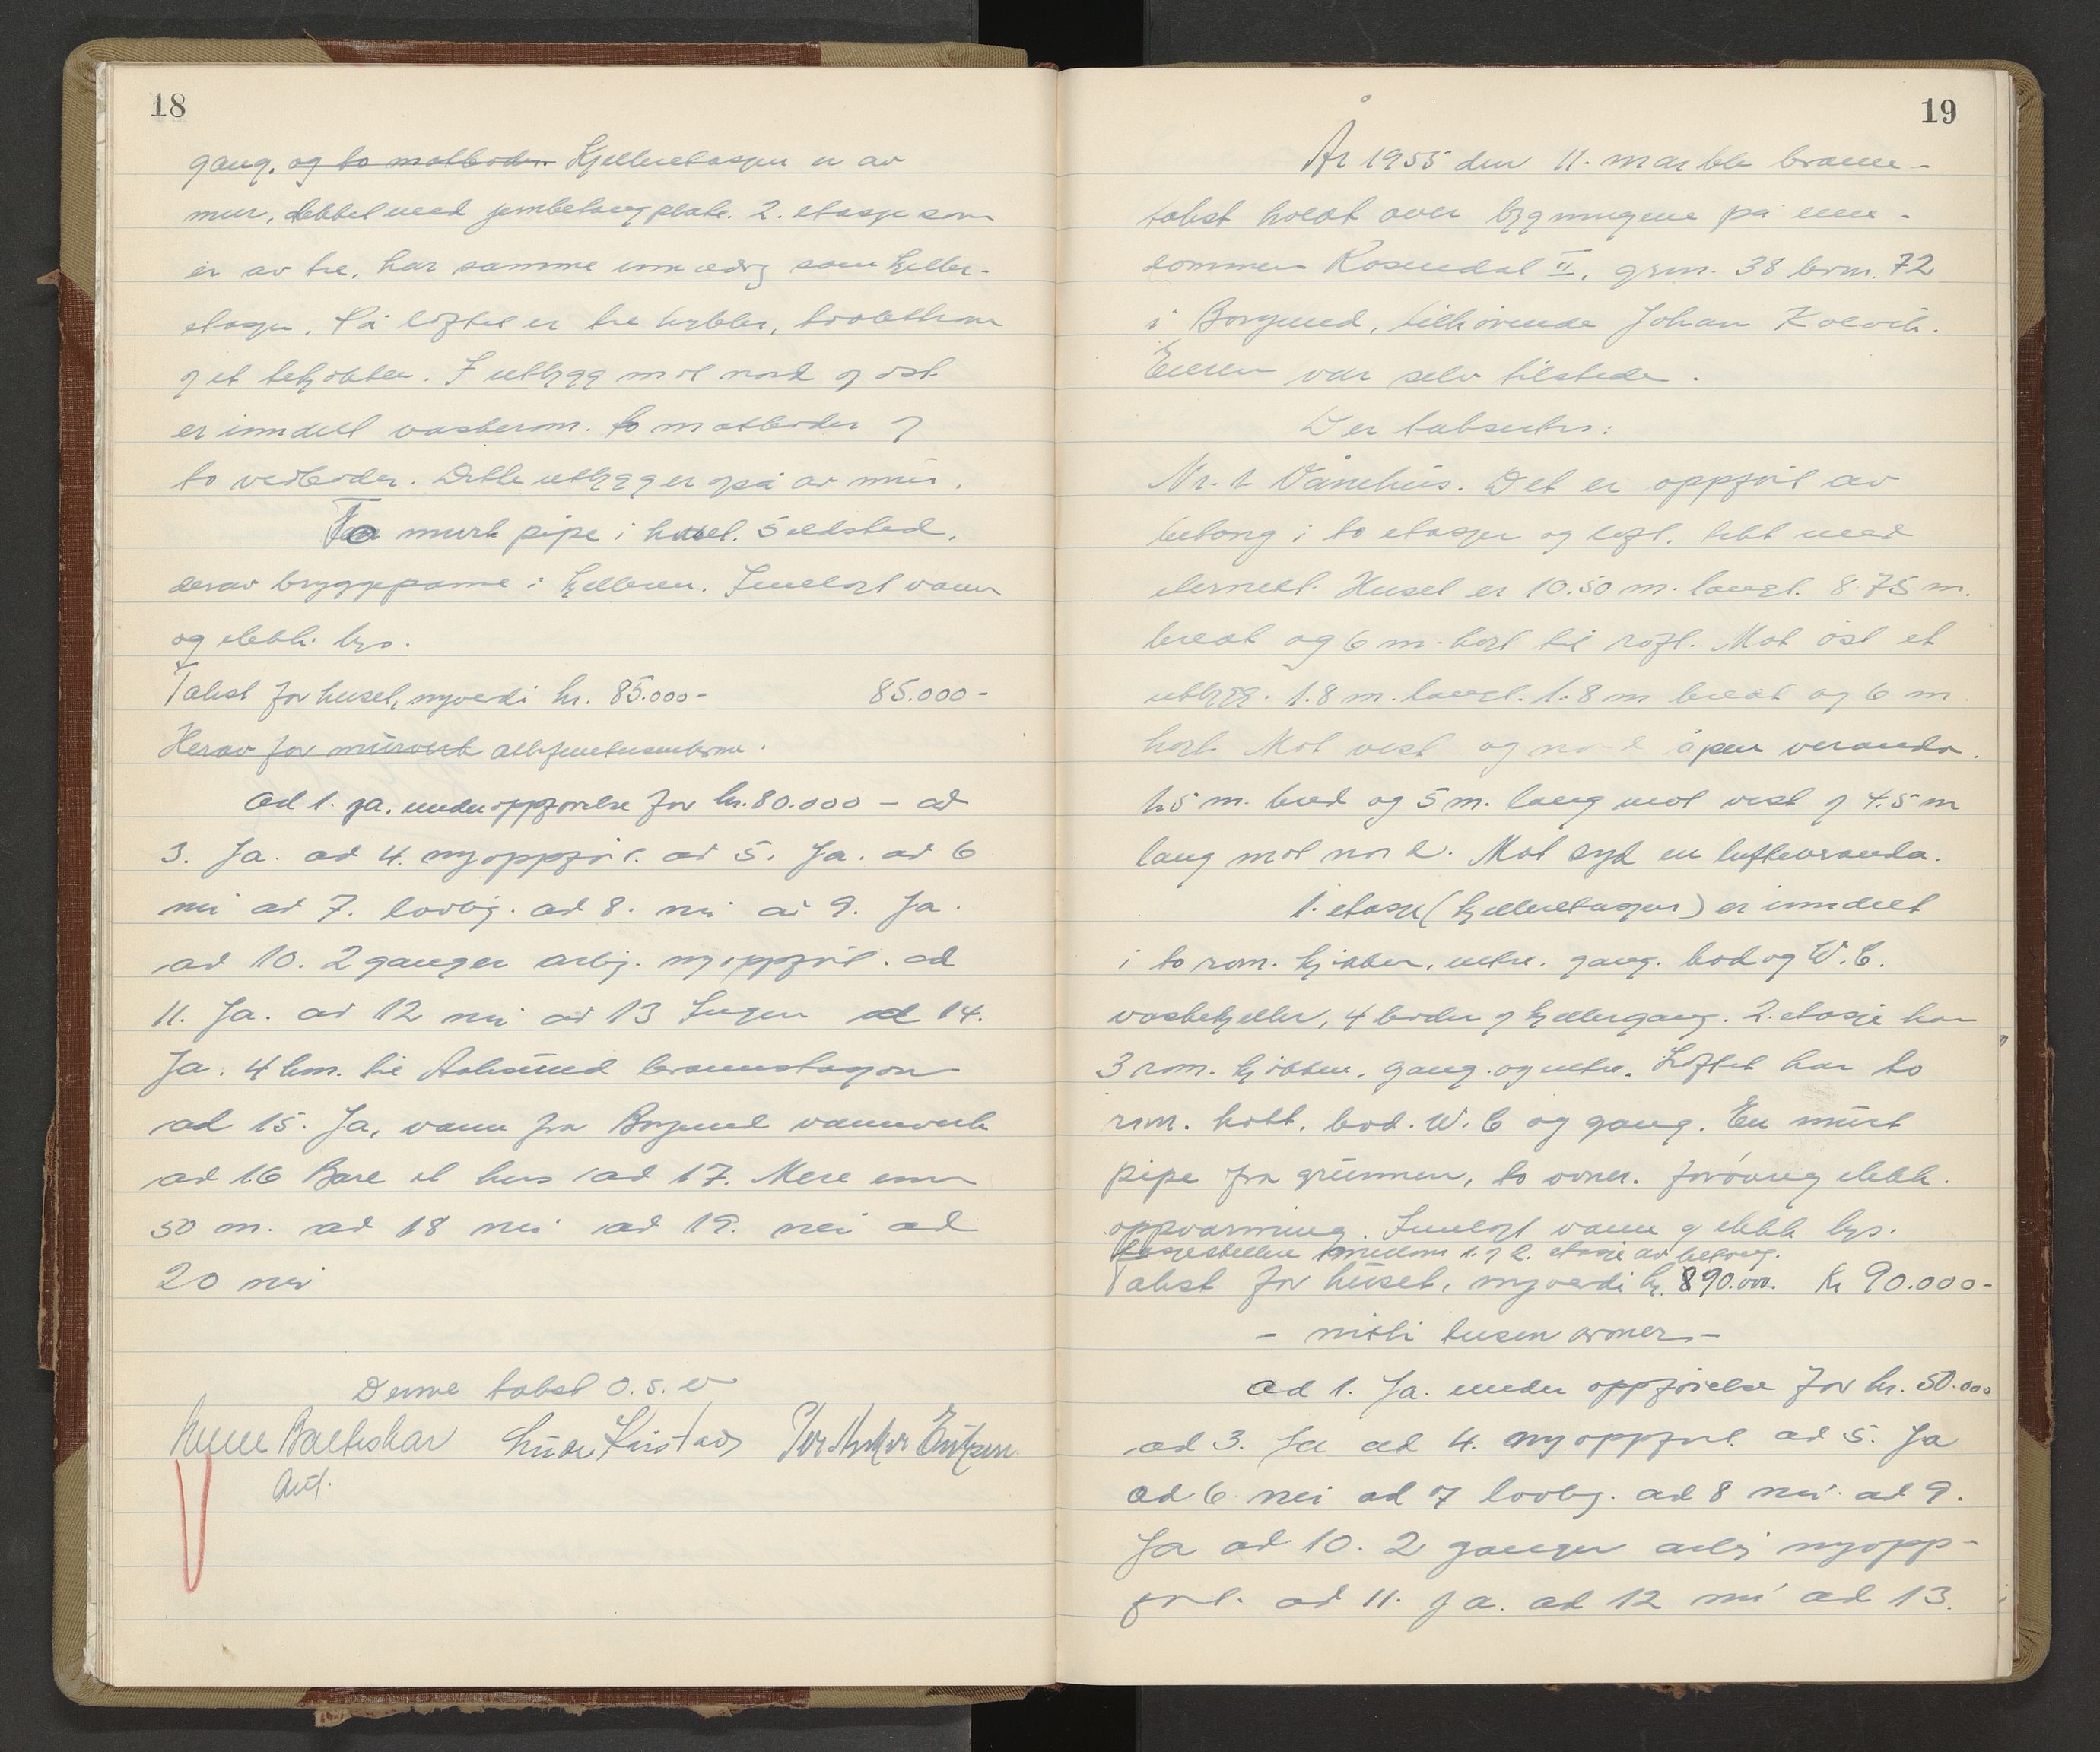 18
gang. og to matboder. Kjelleretasjen er av
mur, dekket med jernbetongplate. 2. etasje som
er av tre, har samme innredng som kjeller-
etasjen. På loftet er tre hybler, toalettrom
og et tekjøkken. I utbygg mot nord og øst
er inndelt vaskerom. to matboder og
to vedboder. Dette utbygg er også av mur.
To murte pipe i huset. 5 ildsted,
derav bryggepanne i kjelleren. Innlagt vann
og elektr. lys.
Takst for huset, nyverdi kr. 85.000- 85.000-
Herav for murverk åttifemtusenkroner.
ad 1. ja. under oppførelse for kr. 80.000 - ad
3. Ja. ad 4. nyoppført. ad 5. Ja. ad 6
nei ad 7. lovlig. ad 8. nei ad 9. Ja.
ad 10. 2 ganger årlig. nyoppført. ad
11. Ja. ad 12 nei ad 13 Ingen ad 14.
Ja. 4 km. til Aalesund brannstasjon
ad 15. Ja, vann fra Borgund vannverk
ad 16 Bare et hus ad 17. Mere enn
50 m. ad 18 nei ad 19. nei ad
20 nei
Denne takst o.s.v
19
År 1955 den 11. mai ble brann-
takst holdt over bygningene på eien-
dommen Rosendal II, grn. 38 brn. 72
i Borgund, tilhørende Johan Kolvik.
Eieren var selv tilstede.
Der takseres:
Nr. 1. Vånehus. Det er oppført av
betong i to etasjer og loft. tekt med
eternitt. Huset er 10.50 m. langt. 8.75 m.
bredt og 6 m. høgt til røst. Mot øst et
utbygg. 1.8 m. langt. 1.8 m bredt og 6 m.
høgt. Mot vest og nord åpen veranda.
1.5 m. bred og 5 m. lang mot vest og 4.5 m
lang mot nord. Mot syd en luftveranda.
1. etasje (kjelleretasjen) er inndelt
i to rom. kjøkken. entre. gang. bod og W.C.
vaskekjeller, 4 boder og kjellergang. 2. etasje har
3 rom. kjøkken. gang. og entre. Loftet har to
rom. kott. bod. W.C og gang. En murt
pipe fra grunnen, to ovner. forøvrig elektr.
oppvarming. Innlagt vann og elektr. lys.
Etasjeskillen imellom 1. og 2. etasje av betong.
Takst for huset, nyverdi kr. 90.000. kr 90.000-
- nitti tusen kroner -
ad 1. Ja. under oppførelse for kr. 50.000
ad 3. Ja ad 4. nyoppført. ad 5. Ja
ad 6 nei ad 7 lovlig. ad 8 nei ad 9.
Ja ad 10. 2 ganger årlig nyopp-
ført. ad 11. Ja. ad 12 nei ad 13.